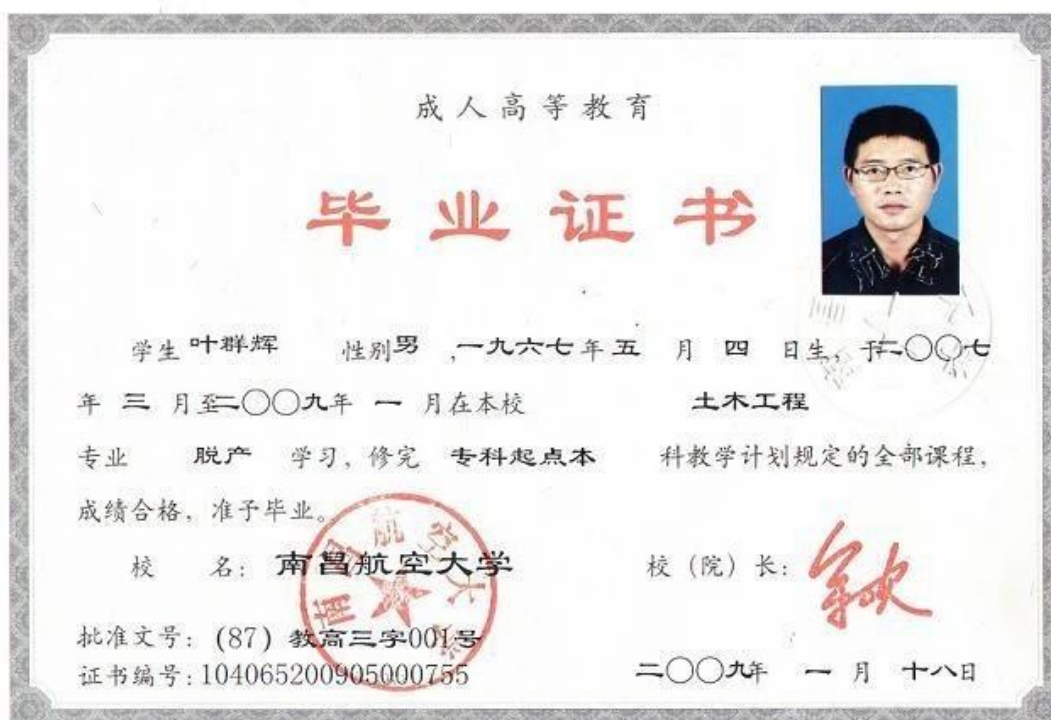 成人高等教育
毕业证书
学生 叶群辉 性别 男 ,一九六七年 五 月 四 日生，于二〇〇七
年 三 月至二〇〇九年 一 月在本校 土木工程
专业 脱产 学习，修完 专科起点本 科教学计划规定的全部课程，
成绩合格，准予毕业。
校 名： 南昌航空大学 校（院）长：
南昌航空大学
批准文号： (87) 教高三字001号
证书编号：104065200905000755 二〇〇九年 一 月 十八日